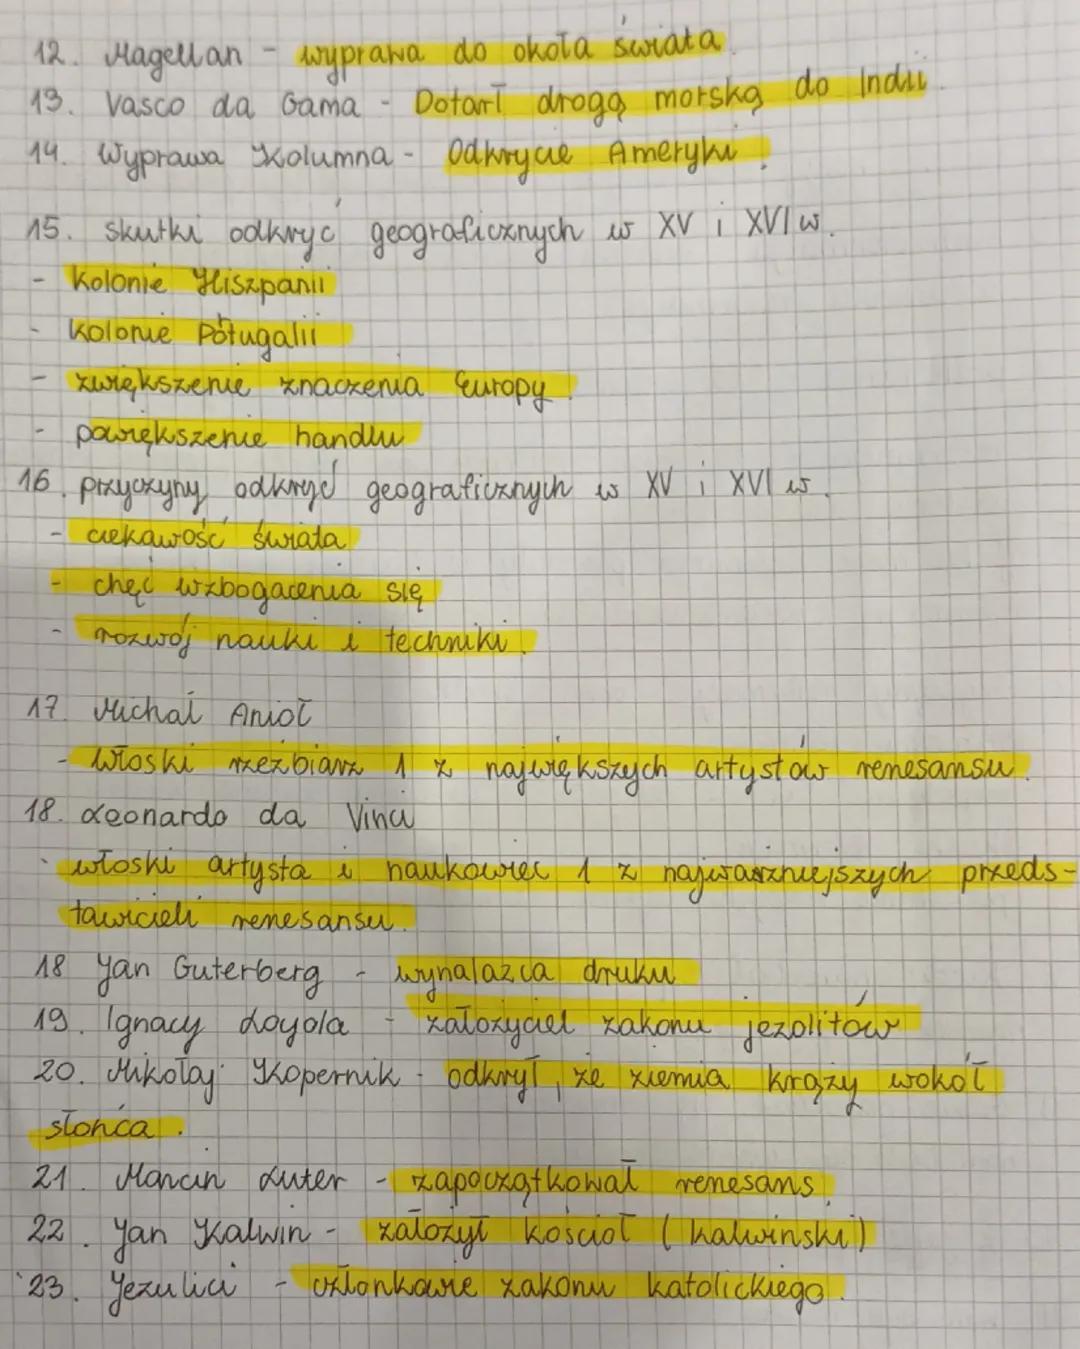 12. Magellan - wyprawa do okoła świata.
13. Vasco da Gama - Dotarł drogą morską do Indii.
14. Wyprawa Kolumna - Odkrycie Ameryki.
15. skutki odkryć geograficznych w XV i XVI w.
- Kolonie Hiszpanii
- Kolonie Potugalii
- zwiększenie znaczenia Europy.
- powiększenie handlu
16. przyczyny odkryć geograficznych w XV i XVI w.
- ciekawość świata
- chęć wzbogacenia się
- rozwój nauki i techniki.
17. Michał Anioł
- włoski rzeźbiarz 1 z największych artystów renesansu.
18. Leonardo da Vinci
- włoski artysta i naukowiec 1 z najważniejszych przeds-
tawicieli renesansu.
18 Jan Guterberg - wynalazca druku
19. Ignacy Loyola - założyciel zakonu jezolitów
20. Mikołaj Kopernik - odkrył, że ziemia krąży wokół
słońca.
21. Marcin Luter - zapoczątkował renesans.
22. Jan Kalwin - założył kościół (kalwiński)
23. Jezulici - członkowie zakonu katolickiego.